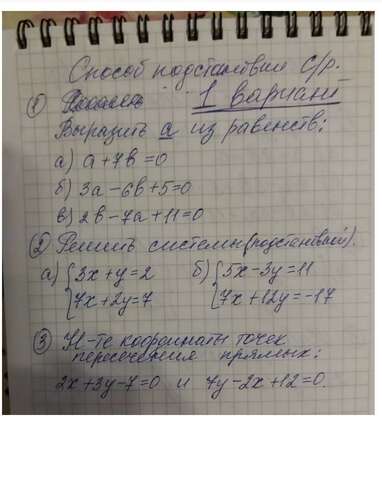 Способ подстановки С/р.
① 1 вариант
Выразить а из равенств:
а) a+7b=0
б) 3a-6b+5=0
в) 2b-7a+11=0
② Решить системы (подстановкой).
а) {3x+y=2 б) {5x-3y=11
{7x+2y=7 {7x+12y=-17
③ Н-те координаты точек
пересечения прямых:
2x+3y-7=0 и 7y-2x+12=0.